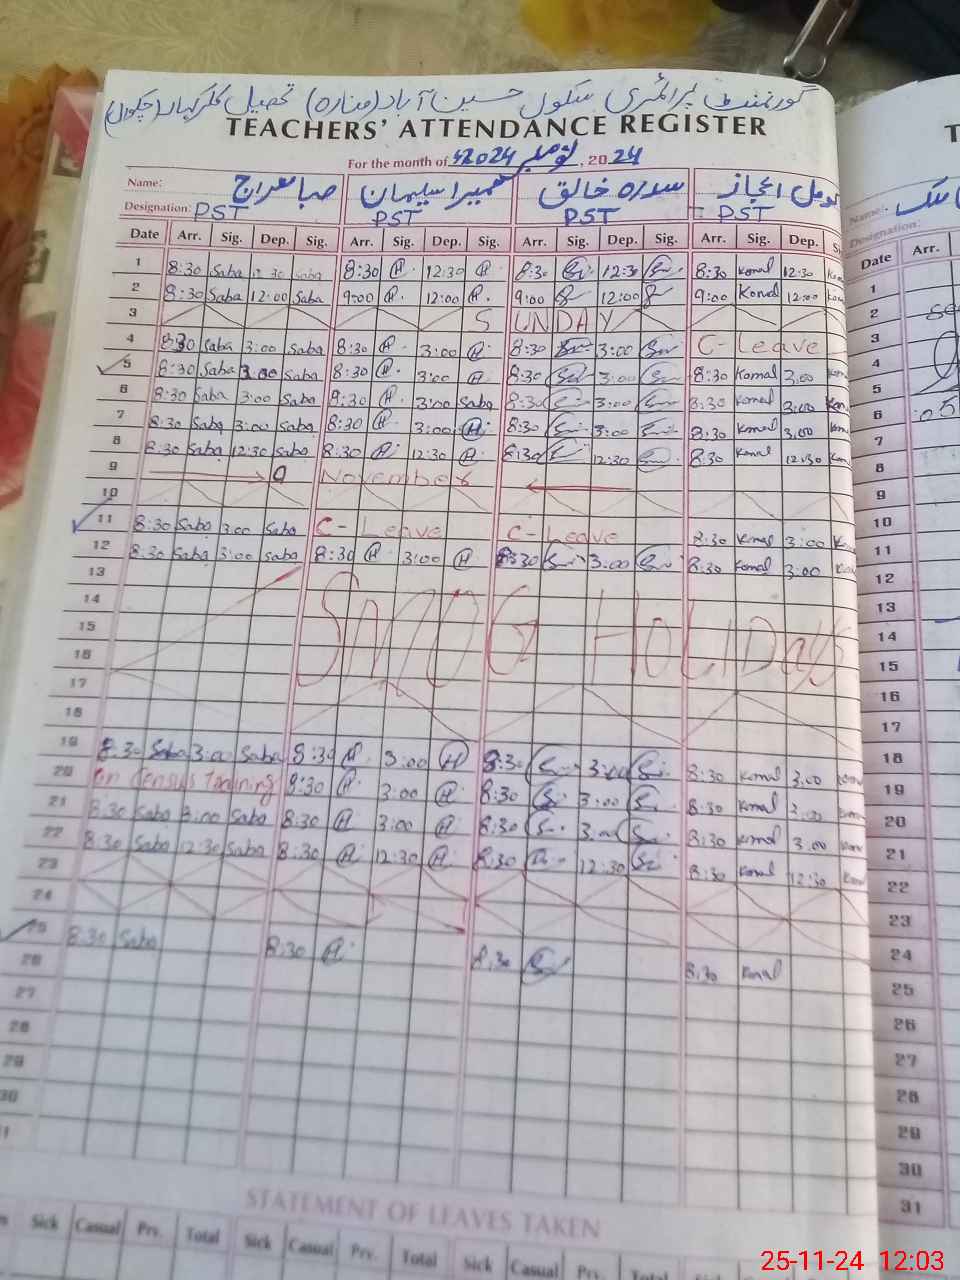 گورنمنٹ پرائمری سکول حسین آباد (منارہ) تحصیل کلرکہار (چکوال)
TEACHERS' ATTENDANCE REGISTER
For the month of نومبر 2024, 2024
Name: صبا معراج حمیرا سلیمان سدرہ خالق کومل اعجاز
Designation: PST PST PST PST
Date Arr. Sig. Dep. Sig. Arr. Sig. Dep. Sig. Arr. Sig. Dep. Sig. Arr. Sig. Dep.
1 8:30 Saba 12:30 Saba 8:30 H. 12:30 H. 8:30 12:30 8:30 Komal 12:30
2 8:30 Saba 12:00 Saba 9:00 H. 12:00 H. 9:00 12:00 9:00 Komal 12:00
3 SUNDAY
4 8:30 Saba 3:00 Saba 8:30 H. 3:00 H. 8:30 3:00 C-Leave
5 8:30 Saba 3:00 Saba 8:30 H. 3:00 H. 8:30 3:00 8:30 Komal 3:00
6 8:30 Saba 3:00 Saba H. 3:00 Saba 8:30 3:00 8:30 Komal 3:00
7 8:30 Saba 3:00 Saba 8:30 H. 3:00 H. 8:30 3:00 8:30 Komal 3:00
8 8:30 Saba 12:30 Saba 8:30 H. 12:30 H. 8:30 12:30 8:30 Komal 12:30
9 9 November
10
11 8:30 Saba 3:00 Saba C-Leave C-Leave 8:30 Komal 3:00
12 8:30 Saba 3:00 Saba 8:30 H 3:00 H 8:30 3:00 8:30 Komal 3:00
13
14 SMOG HOLIDays
15
16
17
18
19 8:30 Saba 3:00 Saba 8:30 H. 3:00 H 8:30 3:00 8:30 Komal 3:00
20 on Census Training 8:30 H. 3:00 H. 8:30 3:00 8:30 Komal 3:00
21 8:30 Saba 3:00 Saba 8:30 H. 3:00 H. 8:30 3:00 8:30 Komal 3:00
22 8:30 Saba 12:30 Saba 8:30 H. 12:30 H. 8:30 12:30 8:30 Komal 12:30
23
24
25 8:30 Saba 8:30 H. 8:30 8:30 Komal
26
27
28
29
30
STATEMENT OF LEAVES TAKEN
Sick Casual Prv. Total Sick Casual Prv. Total Sick Casual Prv. Total
Name:
Designation:
Date Arr.
1
2
3
4
5
6
7
8
9
10
11
12
13
14
15
16
17
18
19
20
21
22
23
24
25
26
27
28
29
30
31
25-11-24 12:03